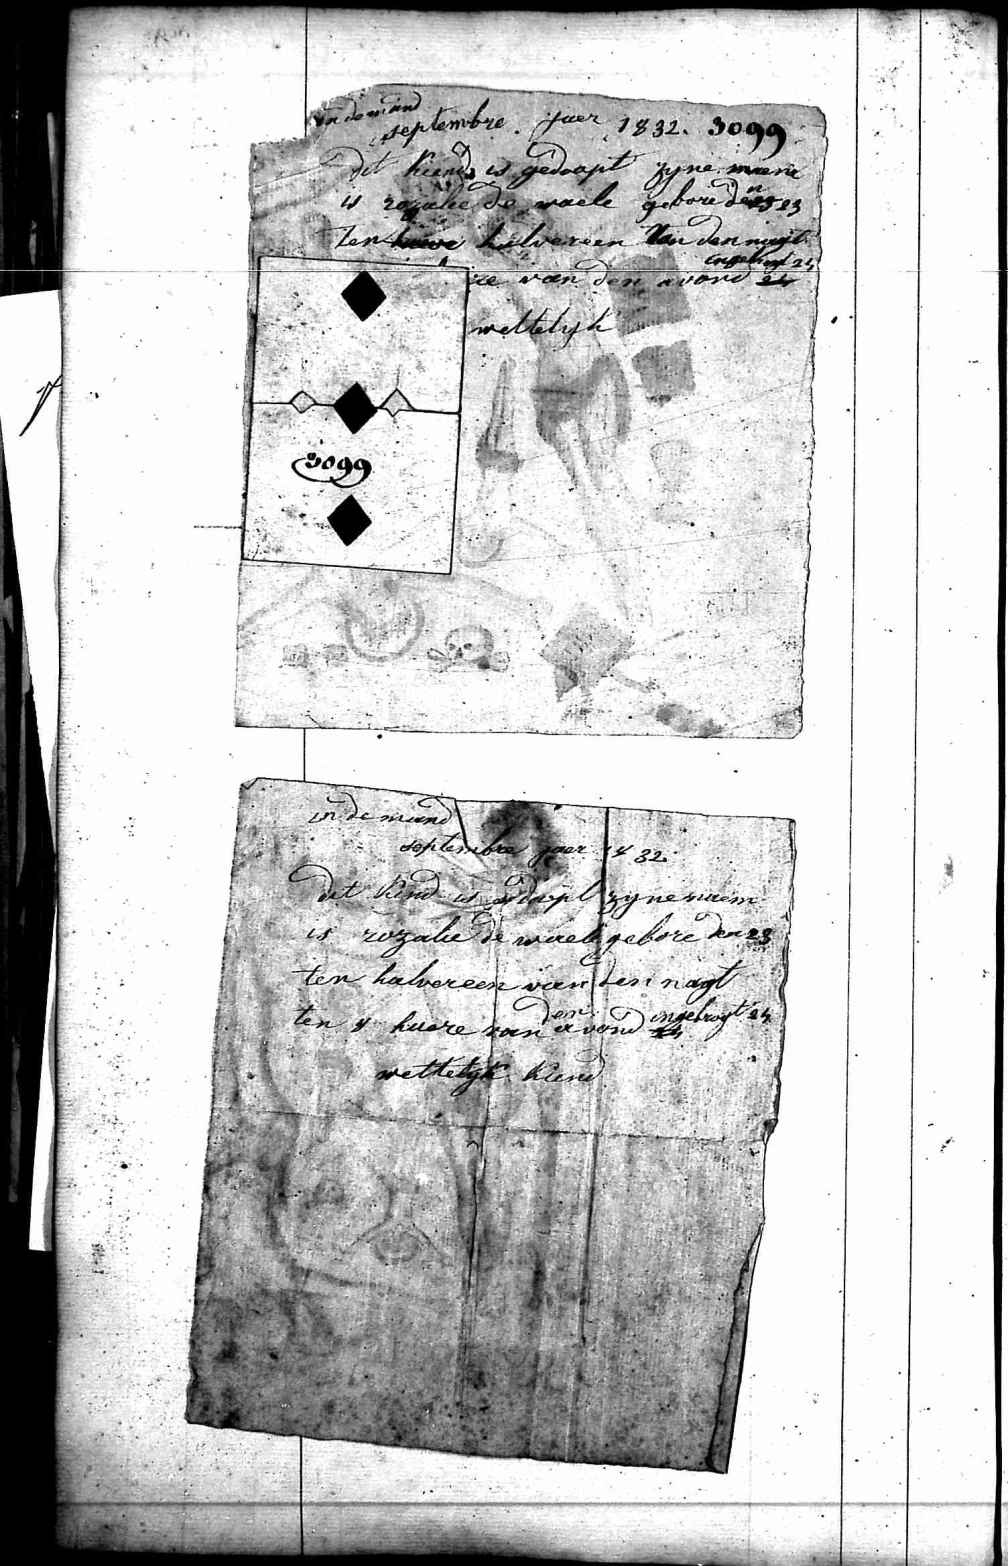 in de mand
septembre jaer 1832. 3099
dit kind is gedoapt zyne naem
is rozalie de waele gebore den 23
ten halvereen van den nagt
ingebrogt 24
van den avond
wettelyk
3099
in de mand
septembre jaer 1832.
dit kind is gedoapt zyne naem
is rozalie de waele gebore den 23
ten halvereen van den nagt
ten 9 huere van den avond ingebrogt 24
wettelyk kiend